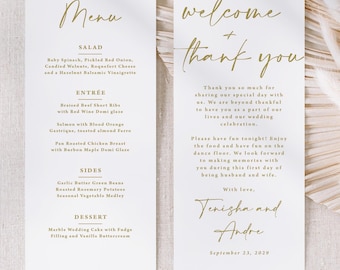 Menu
SALAD
Baby Spinach, Pickled Red Onion,
Candied Walnuts, Roquefort Cheese
and a Hazelnut Balsamic Vinaigrette
ENTRÉE
Braised Beef Short Ribs
with Red Wine Demi glace
Salmon with Blood Orange
Gastrique, toasted almond Farro
Pan Roasted Chicken Breast
with Bourbon Maple Demi Glace
SIDES
Garlic Butter Green Beans
Roasted Rosemary Potatoes
Seasonal Vegetable Medley
DESSERT
Marble Wedding Cake with Fudge
Filling and Vanilla Buttercream
welcome
+
thank you
Thank you so much for
sharing our special day with
us. We are beyond thankful
to have you as a part of our
lives and our wedding
celebration.
Please have fun tonight! Enjoy the
food and have fun on the
dance floor. We look forward
to making memories with
you during this first day of
being husband and wife.
With love,
Tenisha and
Andre
September 23, 2020